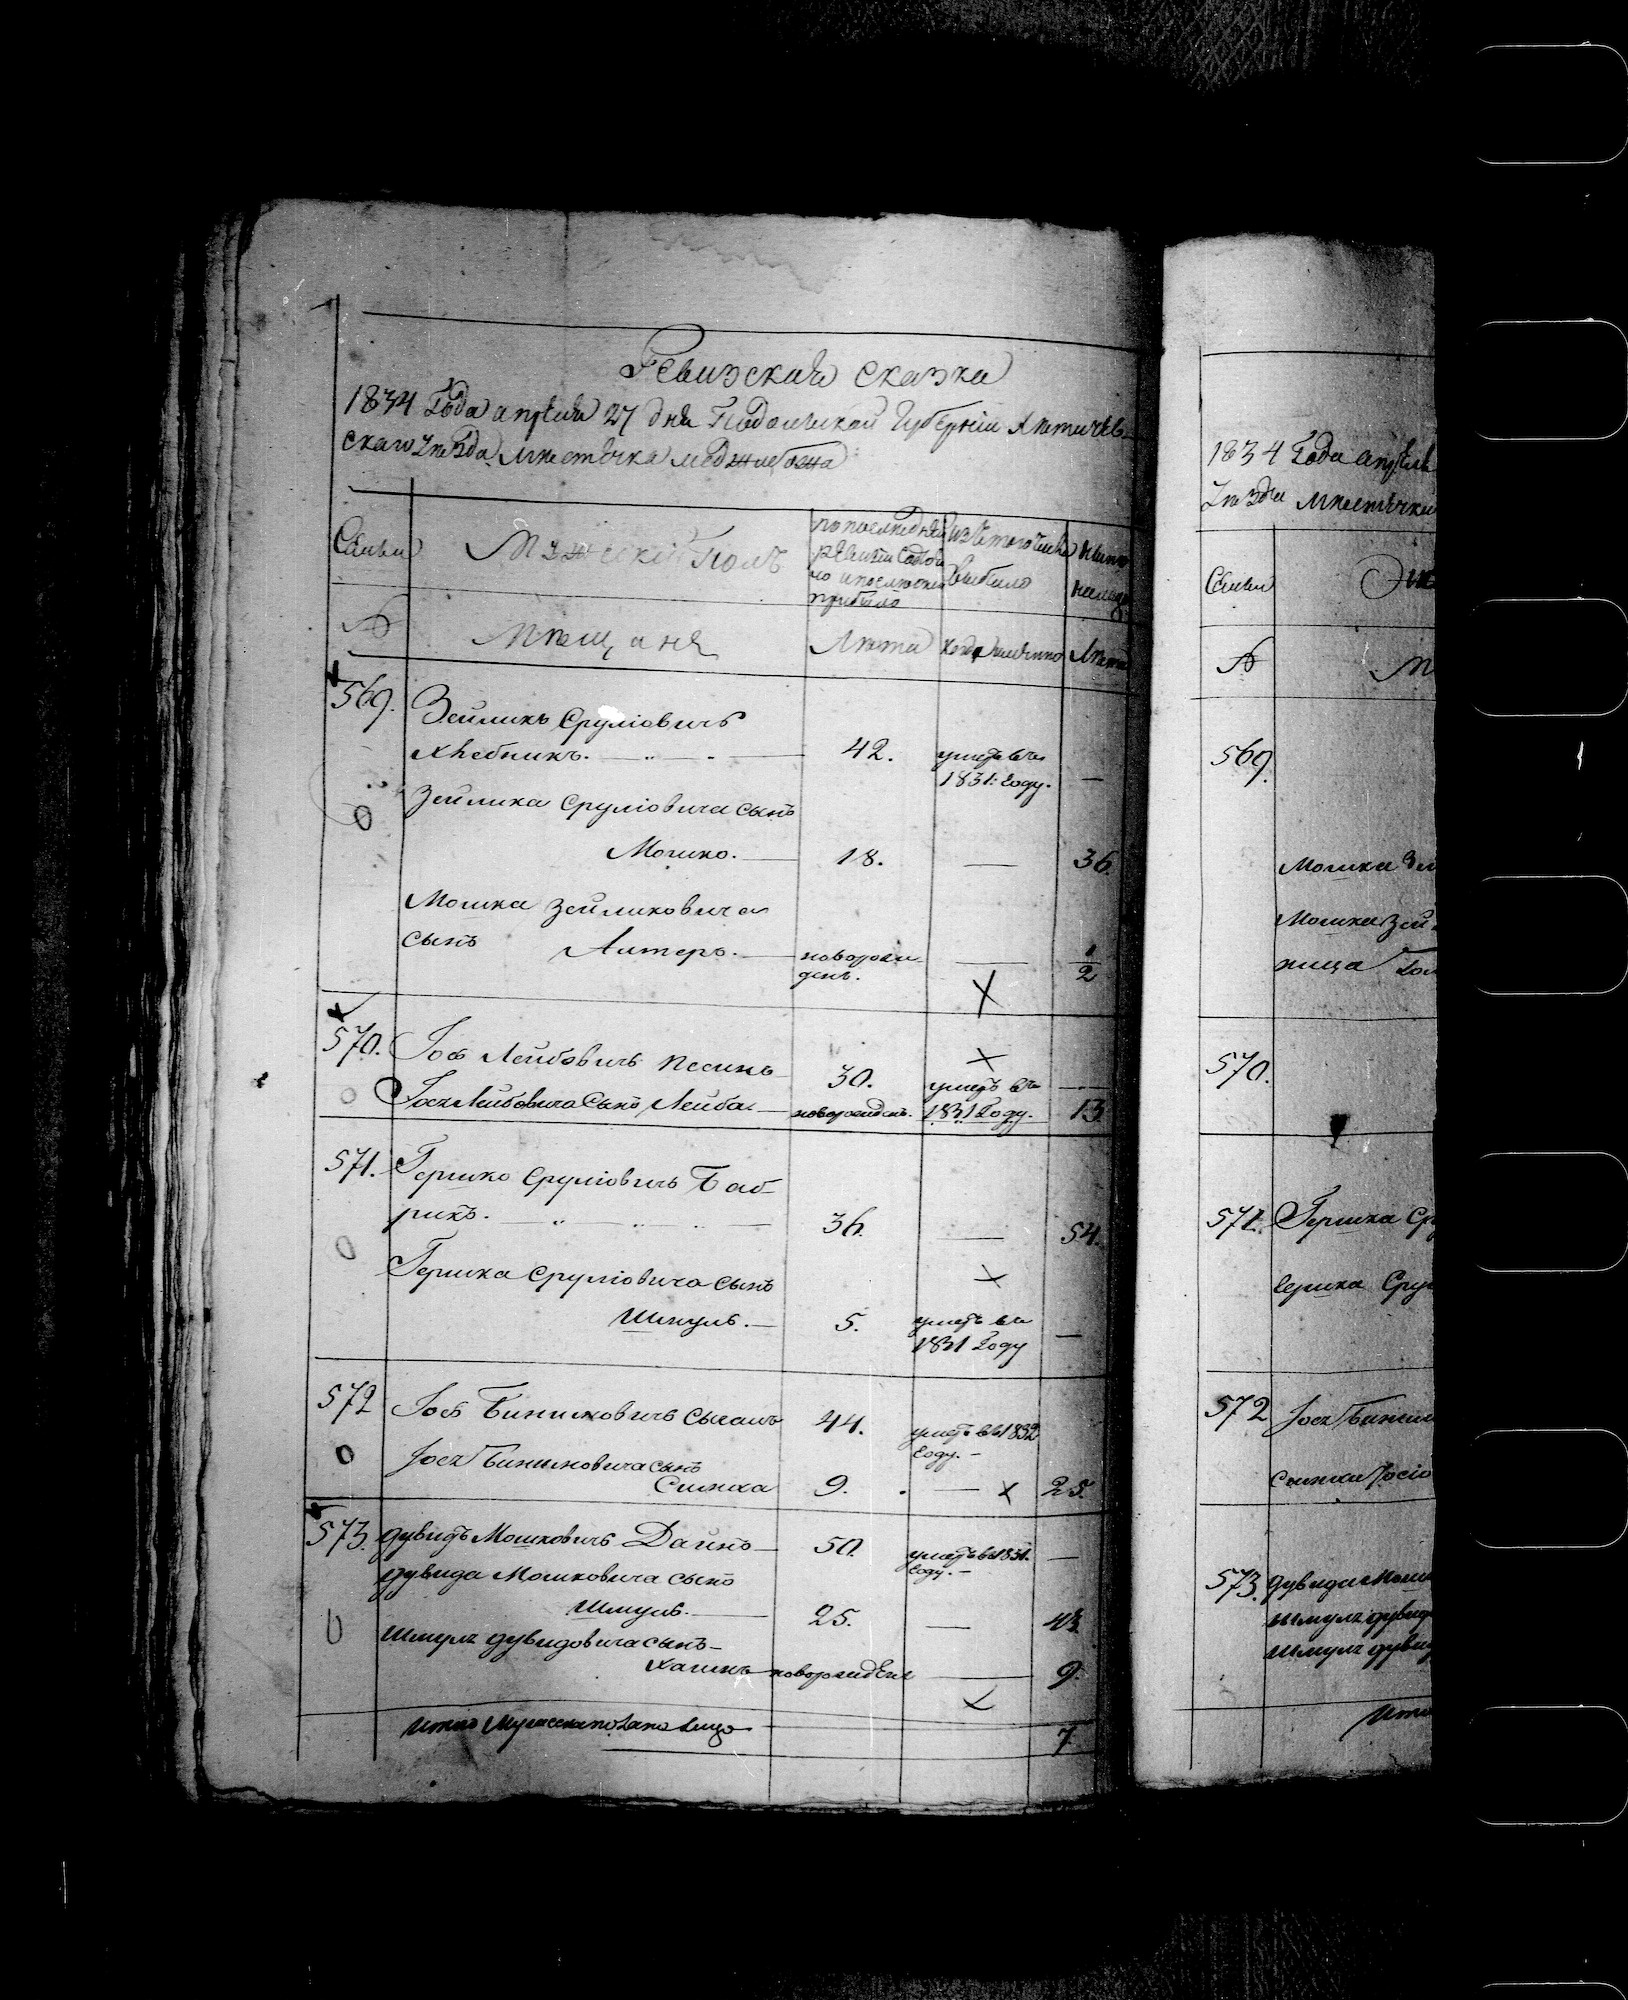 Ревизская сказка
1834 Года апреля 27 дня Подольской Губернии Летичев-
скаго уезда местечка меджибожа
Семьи
Мужеский Полъ
по последней
ревизии состо
яло и после оной
прибыло
Изъ того числа
выбыло
Ныне
налицо
№
Мещаня
Лета
Когда именно
Лета
569. Зейликъ Сруліовичъ
Хлебникъ. 42. умеръ въ
1831: Году. —
Зейлика Сруліовича сынъ
Мошко. — 18. — 36.
Мошка Зейликовича
сынъ Алтеръ. — новорож-
денъ. — 1/2
570. Іосъ Лейбовичъ Песинъ 30. умеръ въ —
Лейбовича Сынъ Лейба — новорожденъ. 1831 Году. 13
571. Гершко Сруліовичъ Баб-
рикъ. 36. — 54.
Гершка Сруліовича сынъ
Шмуль. — 5. умеръ въ
1831 Году —
572 Іосъ 44. умеръ въ 1832
Году. —
сынъ
Симха 9. — 25.
573. Дувидъ Мошковичъ 50. умеръ въ 1831.
Году. — —
Дувида Мошковича сынъ
Шмуль. — 25. —
Шмуля Дувидовича сынъ —
Хаимъ — новорожденъ — 9.
Итого Мужеска пола на лицо 7
1834 Года апреля
уезда местечка
Семьи
№
М
569.
Мошка
Мошка Зей
570.
571. Гершка Ср
Гершка Срул
572
Симхи
573. Дувида Мош
Шмуля Дувид
Шмуля Дувид
Ито